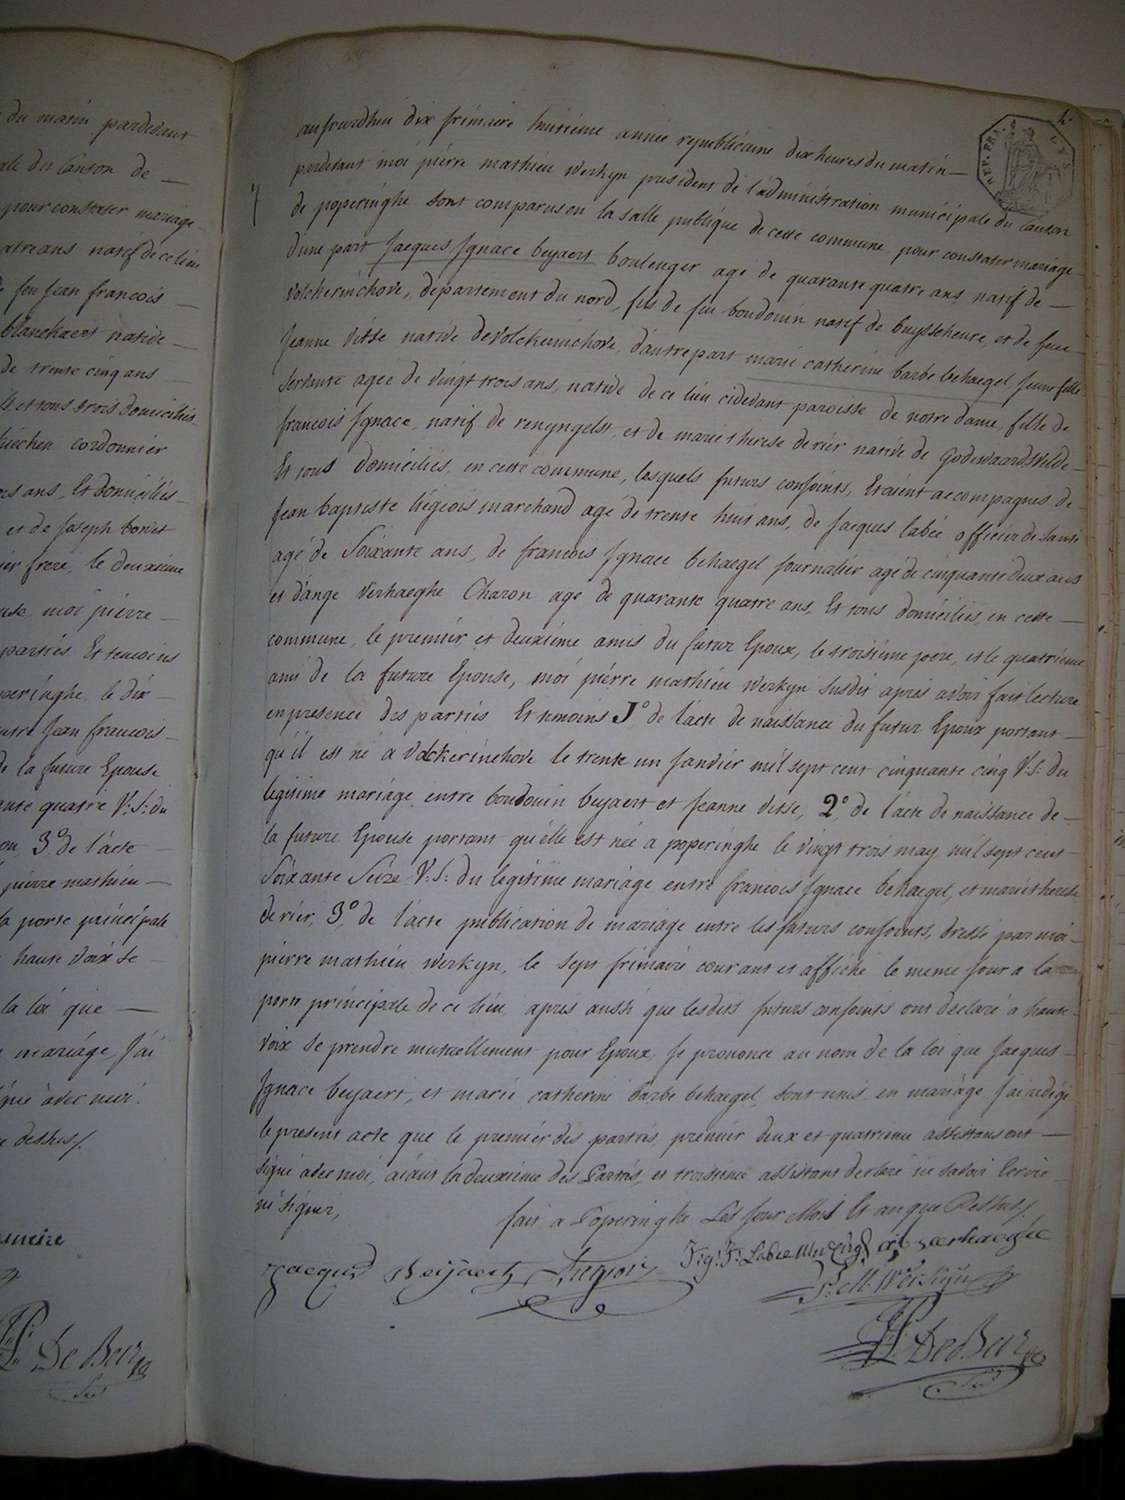 du matin pardevant
ale du Canton de
pour constater mariage
atre ans natif de ce lieu
feu jean francois
blanckaert native
de trente cinq ans
et tous trois domiciliés
cordonnier
ans, Et domiciliés
et de Joseph bonet
ier frere, le deuxieme
moi pierre
parties Et temoins
peringhe le dix
Jean francois
de la future Epouse
quatre V: S: du
3.° de l'acte
pierre mathieu
la porte principale
haute voix se
la loi que
mariage, j'ai
signé avec moi.
dessus/.
De Beir
4.
REP. FRA.
7
aujourdhui dix frimaire huitieme année republicaine dix heures du matin
pardevant moi pierre mathieu werkyn president de l'administration municipale du Canton
de poperinghe sont comparus en la salle publique de cette commune pour constater mariage
d'une part Jacques Ignace beyaert boulenger agé de quarante quatre ans natif de
volckerinchove, departement du nord, fils de feu boudouin natif de buysscheure, et de feue
Jeanne vitse native de volckerinchove, d'autre part marie catherine barbe behaegel jeune fille
servente agée de vingt trois ans, native de ce lieu cidevant paroisse de notre dame, fille de
francois Ignace, natif de renyngelst, et de marie therese derier native de Godewaardsvelde
Et tous domiciliés, en cette commune, lesquels futurs conjoints, Etaient accompagnés de
jean baptiste liégeois marchand agé de trente huit ans, de Jacques labée officier de santé
agé de Soixante ans, de francois Ignace behaegel journalier agé de cinquante deux ans
et d'ange verhaeghe Charon agé de quarante quatre ans, Et tous domiciliés, en cette
commune, le premier, et deuxiéme amis du futur Epoux, le troisiéme pere, et le quatrieme
ami de la future Epouse, moi pierre mathieu werkyn susdit aprés avoir fait lecture
en presence des parties Et temoins 1° de l'acte de naissance du futur Epoux portant
qu'il est né a volckerinchove le trente un janvier mil sept cent cinquante cinq V: S: du
legitime mariage entre boudouin beyaert et Jeanne vitse, 2° de l'acte de naissance de
la future Epouse portant qu'elle est née a poperinghe le vingt trois may mil sept cent
Soixante Seize V: S: du legitime mariage entre francois Ignace behaegel, et marie therese
derier, 3° de l'acte publication de mariage entre les futurs conjoints, dressé par moi
pierre mathieu werkyn, le sept frimaire courant et affiché le meme jour a la
porte principale de ce lieu, apres aussi que lesdits futurs conjoints ont declaré a haute
voix se prendre mutuellement pour Epoux, Je prononce au nom de la loi que Jacques
Ignace beyaert, et marie catherine barbe behaegel, sont unis en mariage, j'ai redigé
le present acte que le premier des parties, premier deux et quatrieme assistans ont
signé avec moi, aiant la deuxieme des Parties, et troisieme assistant declaré ne savoir Ecrire
ni signer,
fait a Poperinghe Les jour Mois Et an que Dessus/.
Jacques Beijaert Liegois J: Labee a: verhaeghe
P: M: Werkyn
De Beir